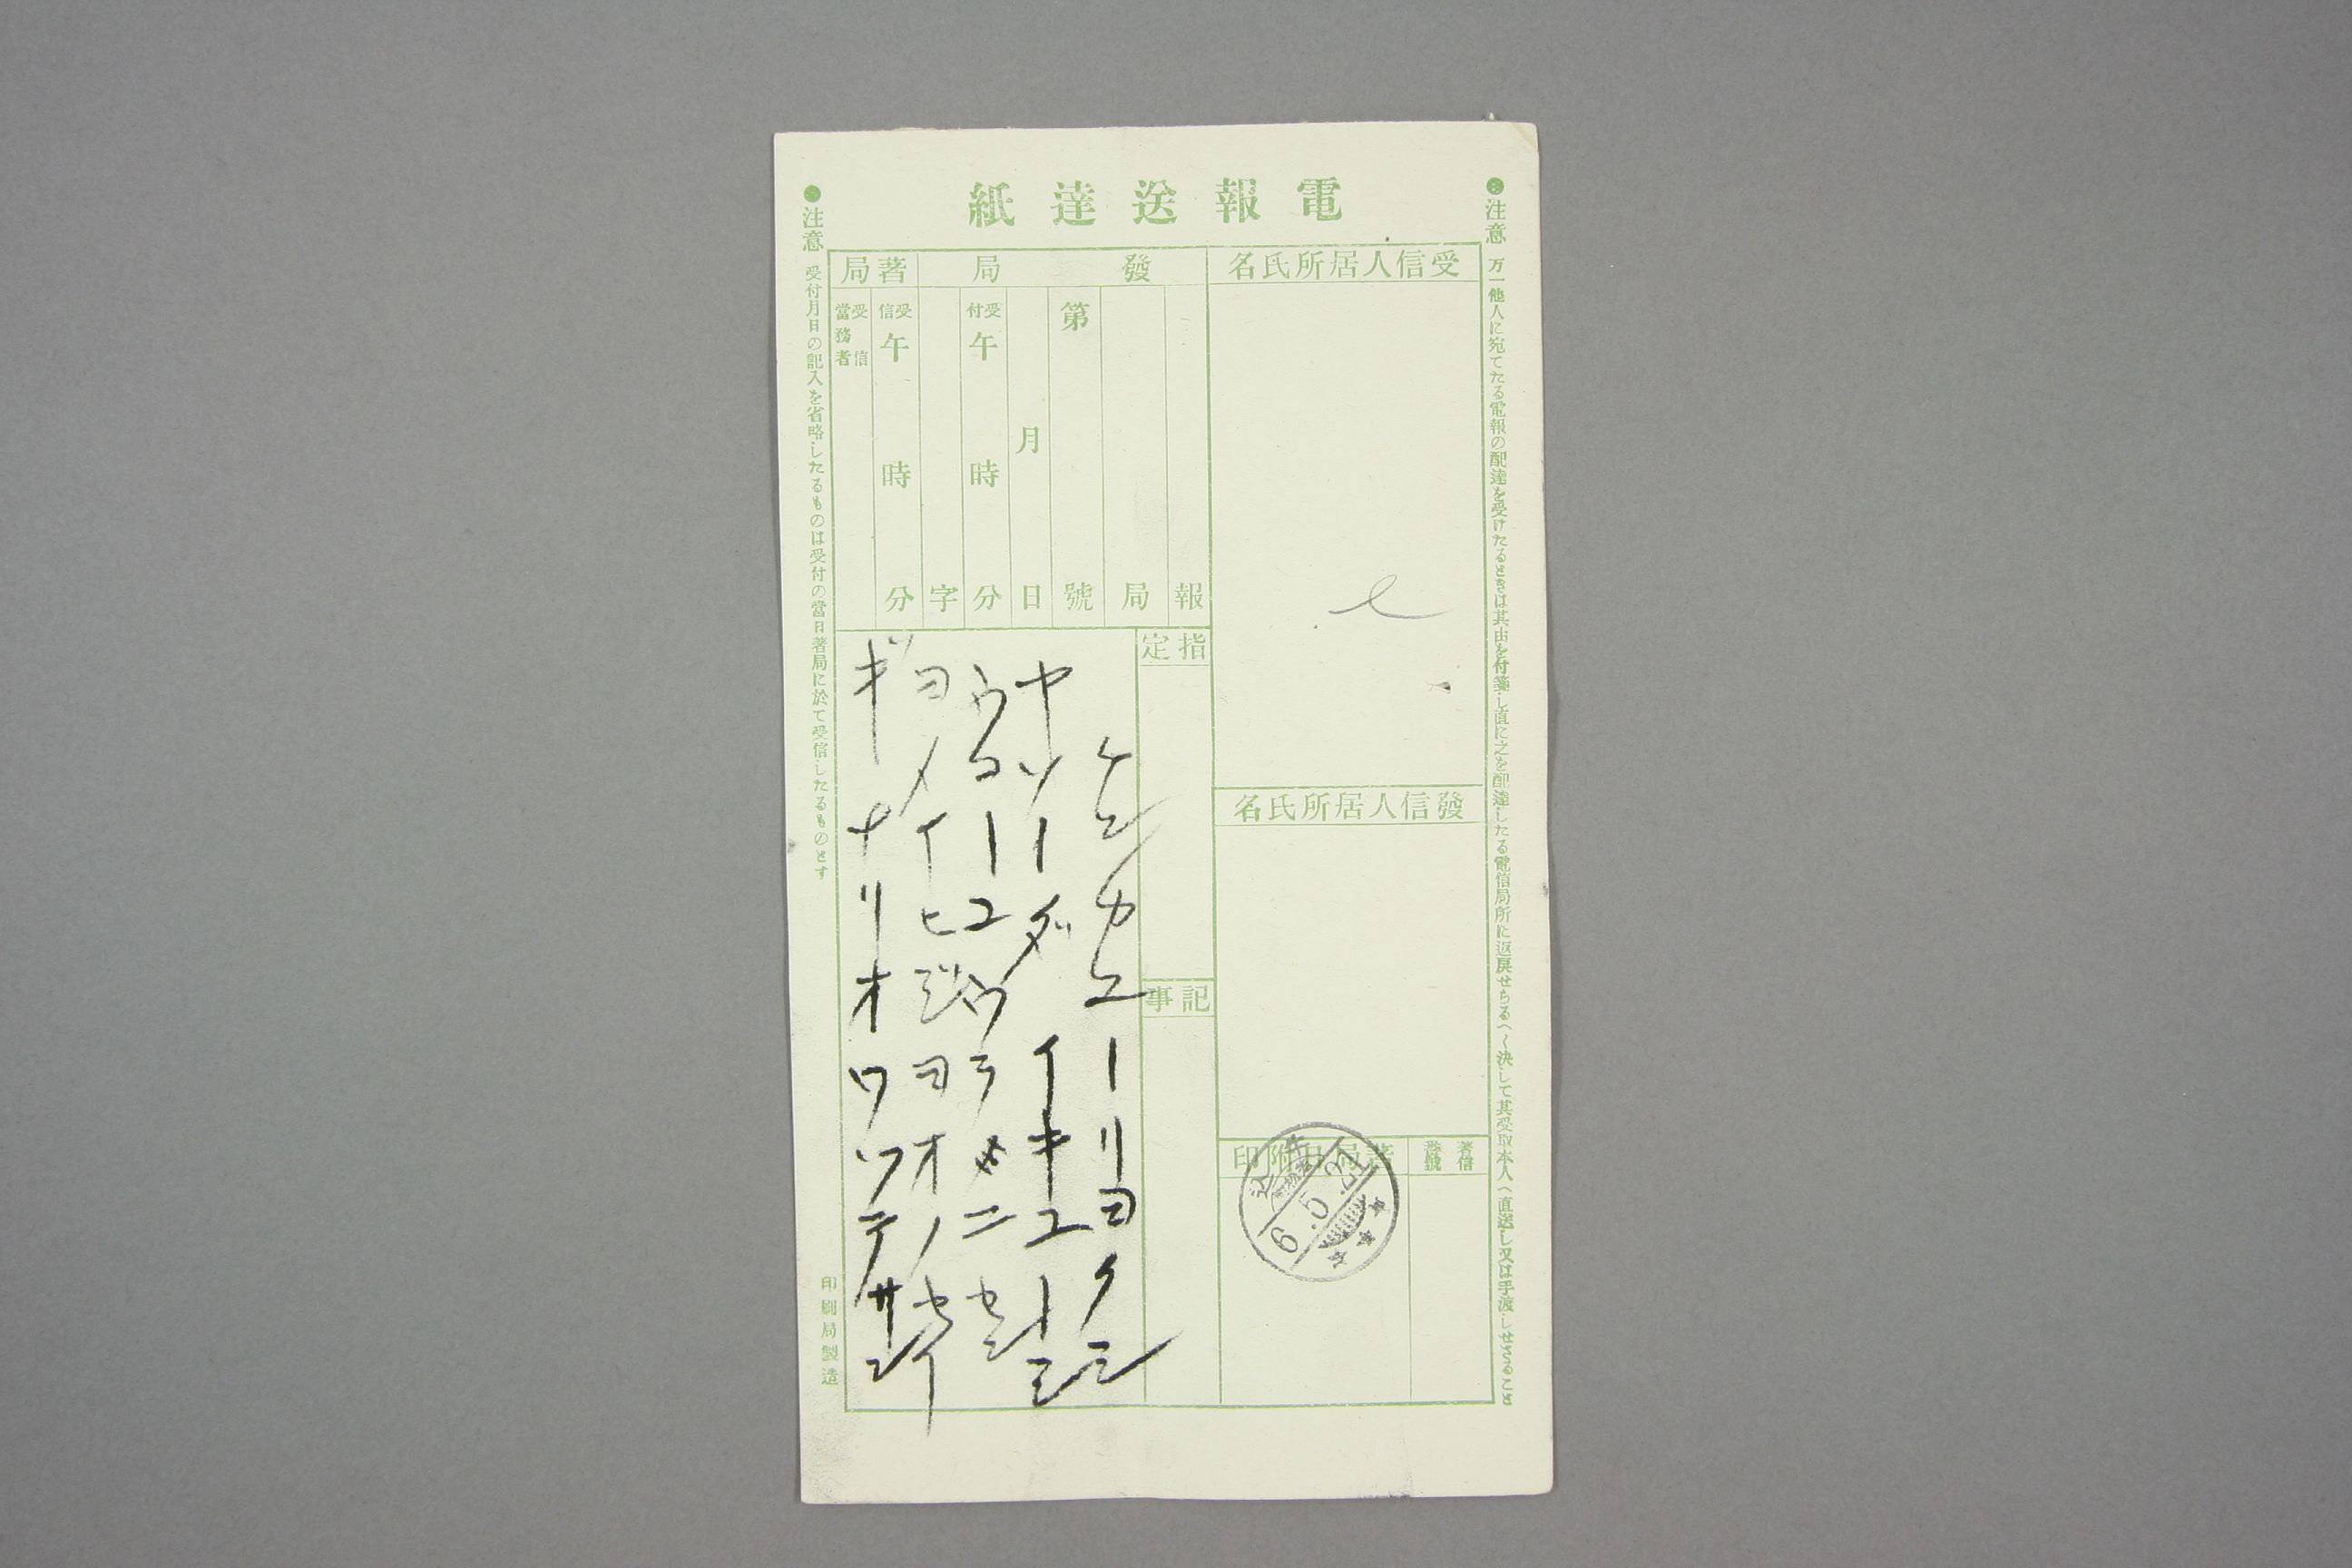 電報送達紙
●注意 万一他人に宛てたる電報の配達を受けたるときは其由を付箋し直に之を配達したる電信局所に返戻せらるへし決して其受取本人へ直送し又は手渡しせさること
受信人居所氏名
發信人居所氏名
著信番號
著局日附印
6.5.21
發局
報
局
第 號
月 日
受付 午 時 分
字
著局
受信 午 時 分
受信當務者
指定
記事
ケンカエーリヨクミ
ヤソーダ イキユーミ
ウコーユウラ ニセン
ヨメイヒジヨオノセイ
ギナリオワツテサン
●注意 受付月日の記入を省略したるものは受付の當日著局に於て受信したるものとす
印刷局製造